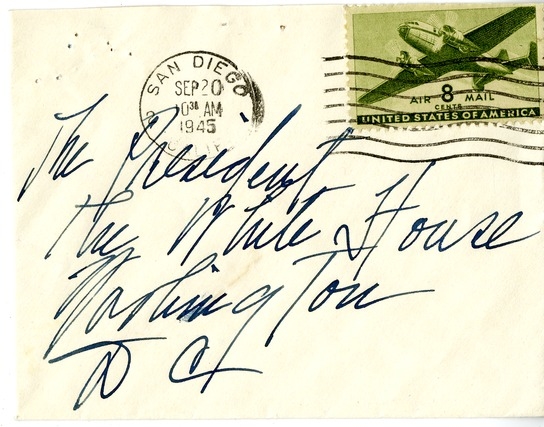 SAN DIEGO
SEP 20
10 30 AM
1945
CALIF.
AIR 8 MAIL
CENTS
UNITED STATES OF AMERICA
The President
The White House
Washington
D C